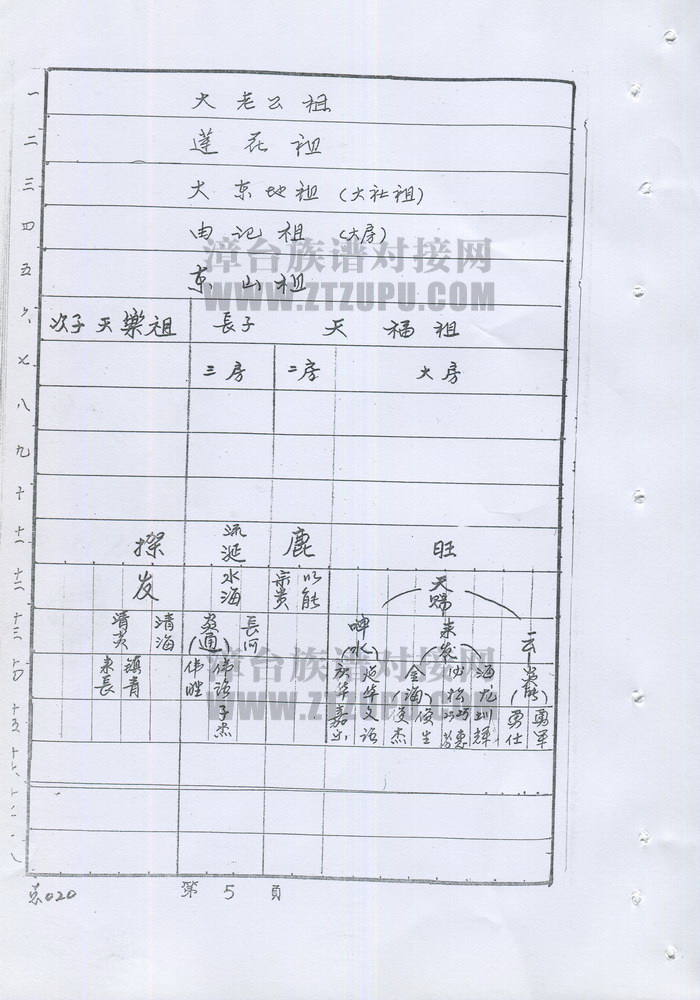 一 大老公祖
二 莲花祖
三 大东地祖(大社祖)
四 由记祖(大房)
漳台族谱对接网
WWW.ZTZUPU.COM
五 东山祖
六 次子天樂祖 長子 天福祖
七 三房 二房 大房
八
九
十
十一 探 流涎 鹿 旺
十二 发 水海 宗贵 以能 天赐
十三 清炎 清海 炎(通) 呻(水) 来发
漳台族谱对接网
WWW.ZTZUPU.COM
十四 来長 镇青 伟 伟语 金海 松 海龙
十五 子杰 嘉乐 文语 俊杰 俊生 圳輝 勇仕 勇军
十六
十七
十八
东020 第5頁